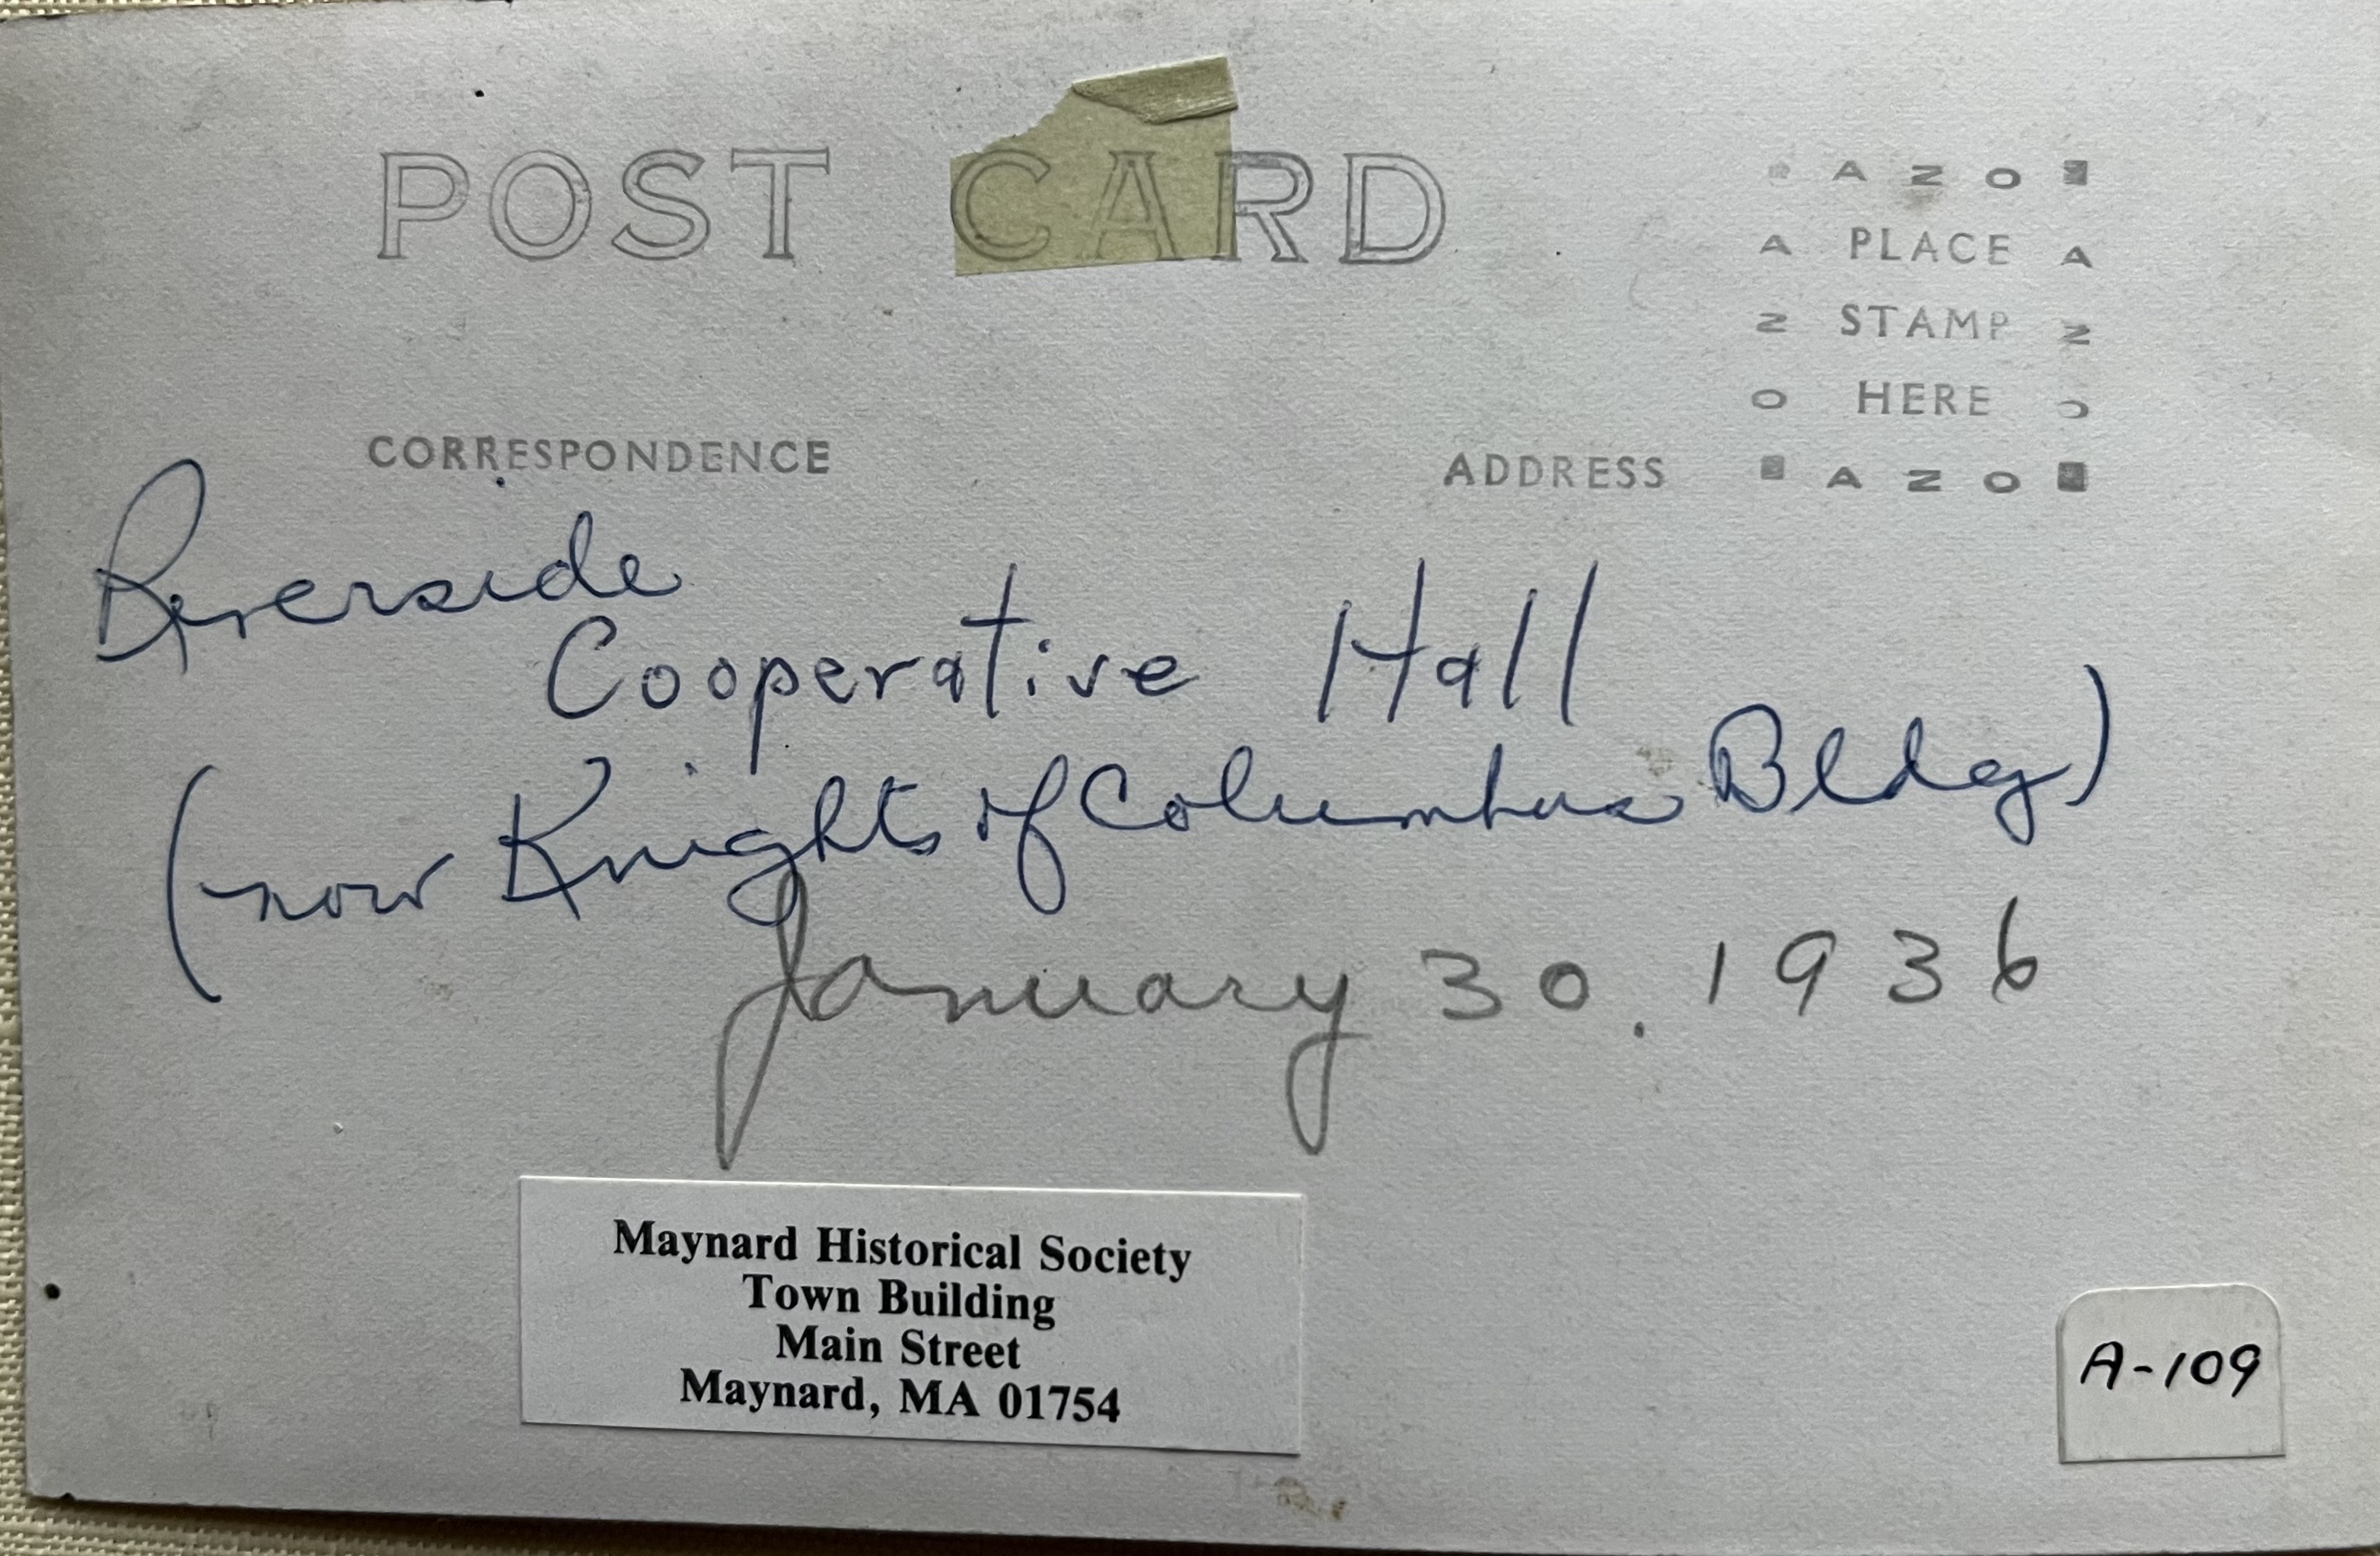 POST CARD
AZO
A PLACE A
Z STAMP Z
O HERE O
AZO
CORRESPONDENCE
ADDRESS
Riverside
Cooperative Hall
(now Knights of Columbus Bldg)
January 30. 1936
Maynard Historical Society
Town Building
Main Street
Maynard, MA 01754
A-109